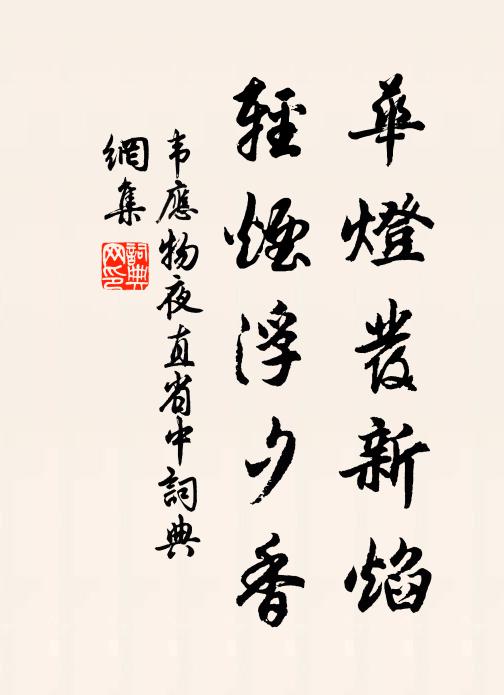 華燈發新焰
輕煙浮夕香
韦應物夜直省中詞典
網集
詞典
网印